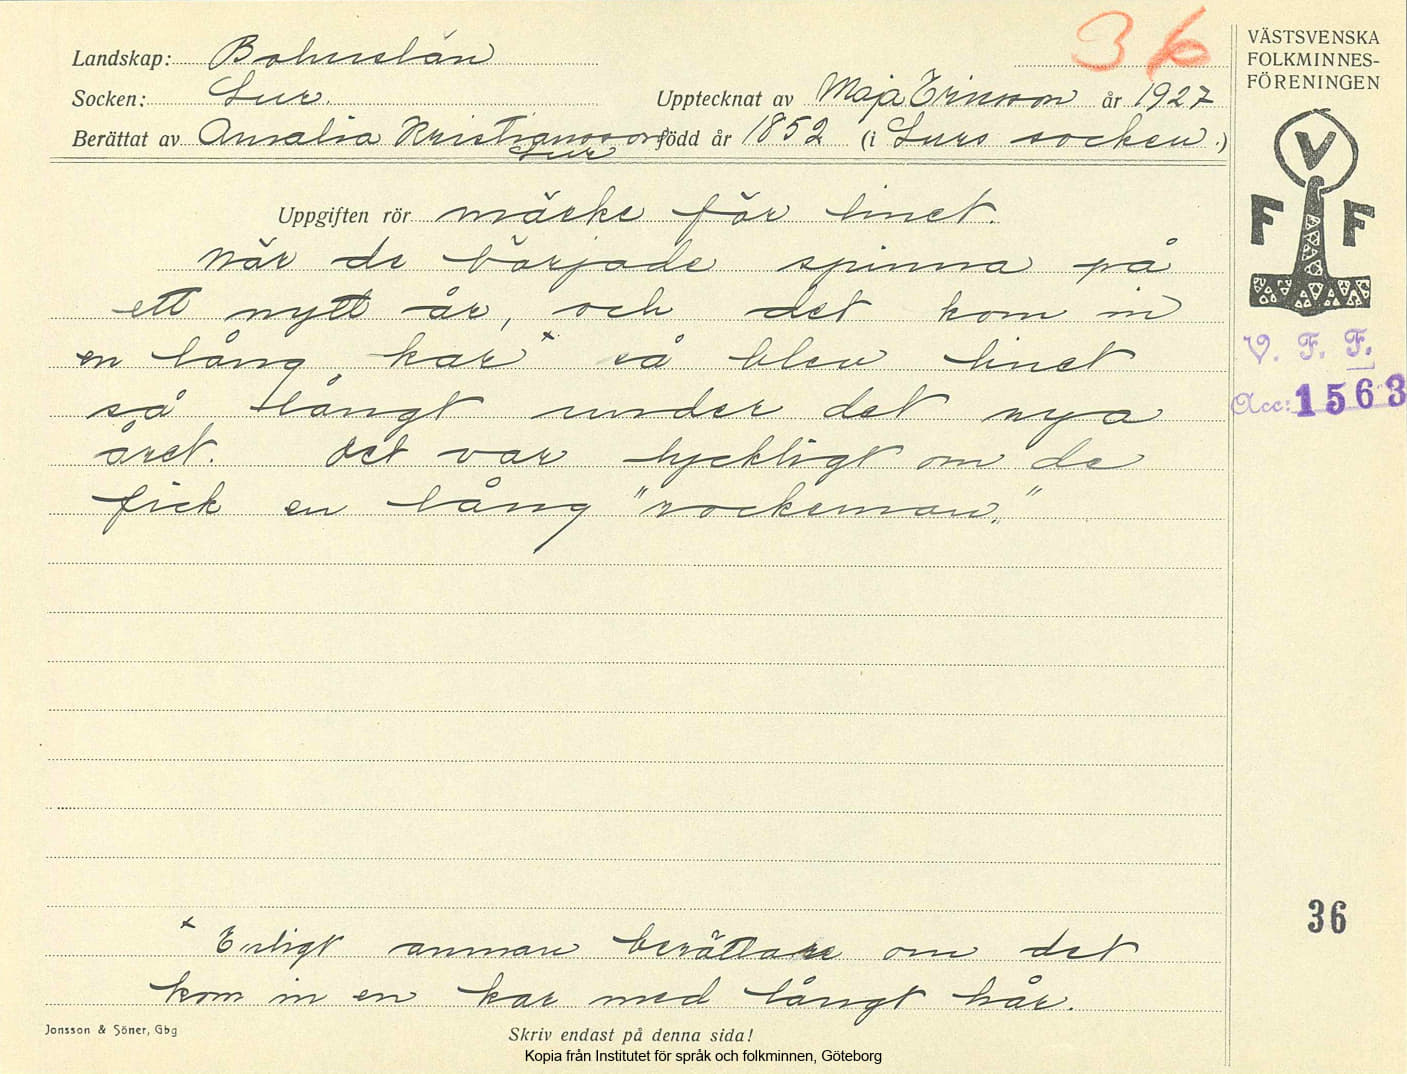 36
VÄSTSVENSKA
FOLKMINNES-
FÖRENINGEN
V
F F
V. F. F.
Acc: 1563
Landskap: Bohuslän
Socken: Lur. Upptecknat av Maja Ericsson år 1927
Berättat av Amalia Kristiansson född år 1852 (i Lurs socken.)
Lur
Uppgiften rör märke för linet.
När de började spinna på
ett nytt år, och det kom in
en lång kar x så blev linet
så långt under det nya
året. Det var lyckligt om de
fick en lång "rockeman."
36
x Enligt annan berättare om det
kom in en kar med långt hår.
Jonsson & Söner, Gbg
Skriv endast på denna sida!
Kopia från Institutet för språk och folkminnen, Göteborg